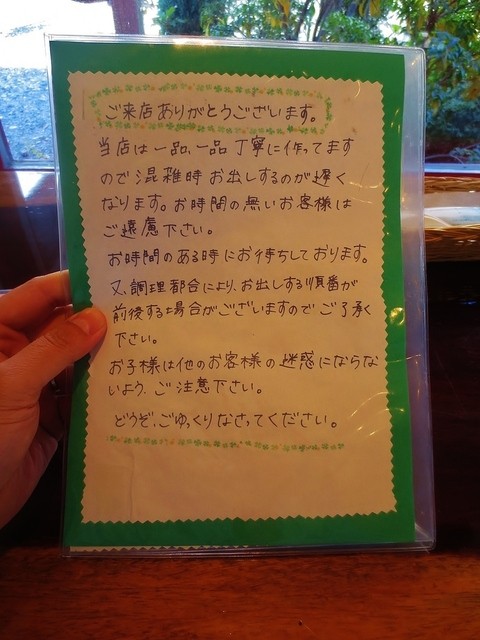 ご来店ありがとうございます。
当店は一品、一品丁寧に作ってます
ので混雑時お出しするのが遅く
なります。お時間の無いお客様は
ご遠慮下さい。
お時間のある時にお待ちしております。
又、調理都合により、お出しする順番が
前後する場合がございますのでご了承く
下さい。
お子様は他のお客様の迷惑にならな
いよう、ご注意下さい。
どうぞ、ごゆっくりなさってください。